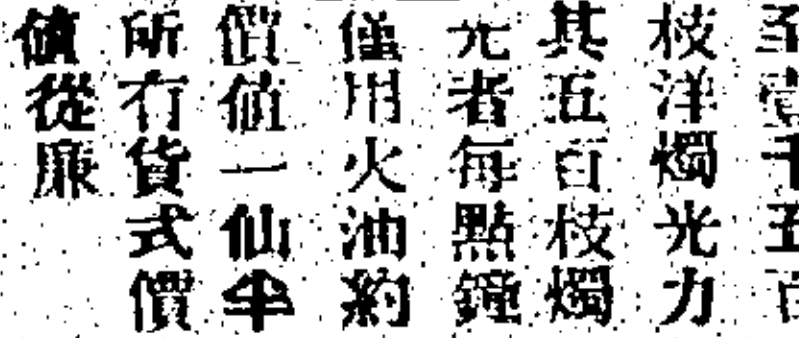 至壹千五百
枝洋燭光力
其五百枝燭
光者每點鐘
僅用火油約
價值一仙半
所有貨式價
值從廉